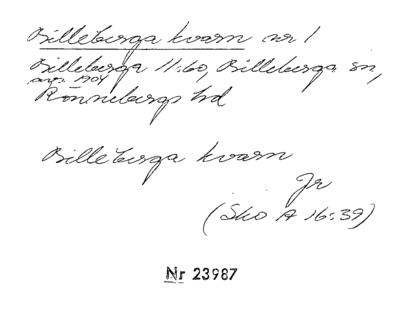 Billeberga kvarn nr 1
Billeberga 11:60, Billeberga sn,
Rönnebergs hd
Billeberga kvarn
Jr
(Sko A 16:39)
Nr 23987